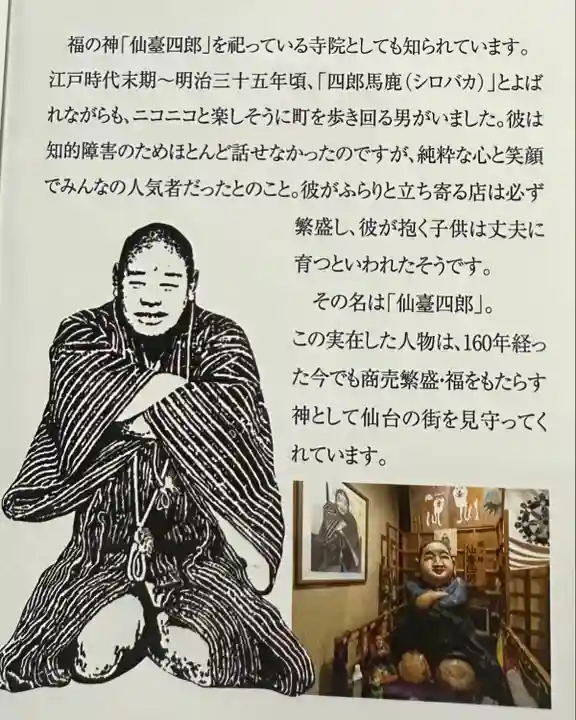 福の神「仙臺四郎」を祀っている寺院としても知られています。
江戸時代末期～明治三十五年頃、「四郎馬鹿（シロバカ）」とよば
れながらも、ニコニコと楽しそうに町を歩き回る男がいました。彼は
知的障害のためほとんど話せなかったのですが、純粋な心と笑顔
でみんなの人気者だったとのこと。彼がふらりと立ち寄る店は必ず
繁盛し、彼が抱く子供は丈夫に
育つといわれたそうです。
その名は「仙臺四郎」。
この実在した人物は、160年経っ
た今でも商売繁盛・福をもたらす
神として仙台の街を見守ってく
れています。